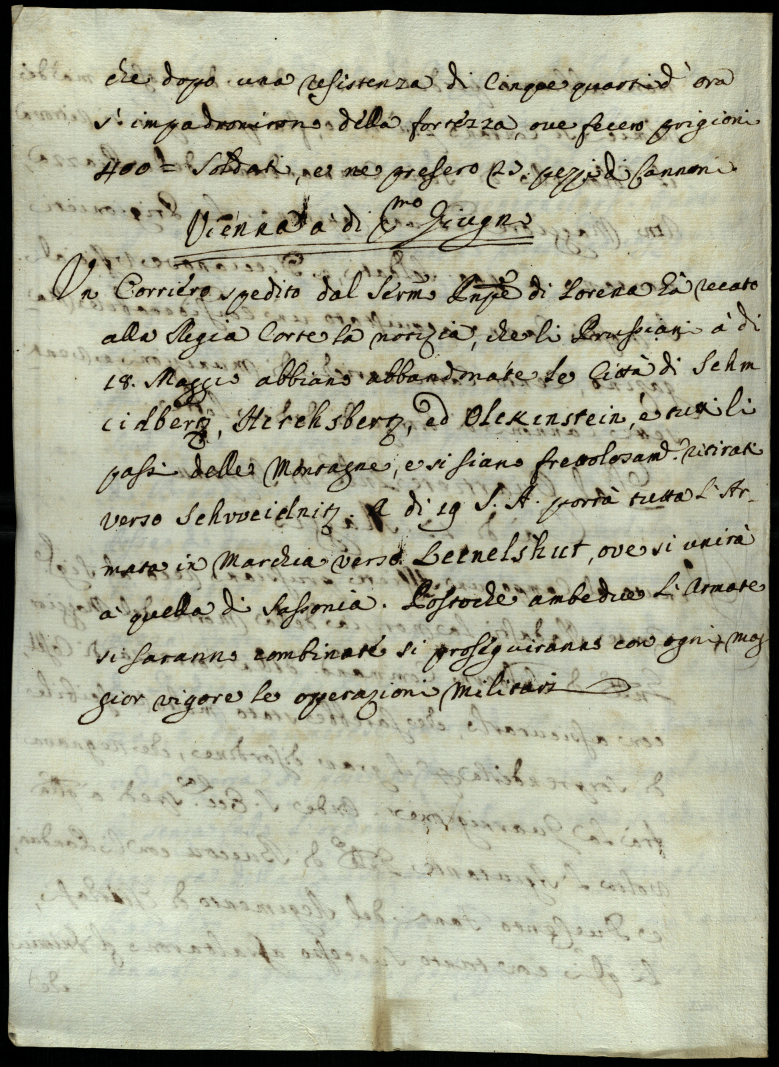 che dopo una resistenza di Cinque quarti d'ora
s'impadronirono della fortezza, ove fecero prigioni
400= Soldati, e ne presero 23. pezzi di Cannoni
Vienna a' di Pmo Giugno
Un Corriero spedito dal Sermo Pnpe di Lorena hà recato
alla Regia Corte la notizia, che li Prussiani à di
18. Maggio abbiano abbandonate le Città di Sehm
cidbertz, Hirchsbertz, ed Olckinstein, e tutti li
passi delle Montagne, e si siano frettolosamte ritirati
verso Sehvveidnitz. A di 19 S. A. porrà tutta l'Ar-
mata in Marchia verso Leenelshut, ove si unirà
a' quella di Sassonia. Postoche ambedue l'Armate
si saranno combinate si proseguiranno con ogni mag
gior vigore le operazioni Militari